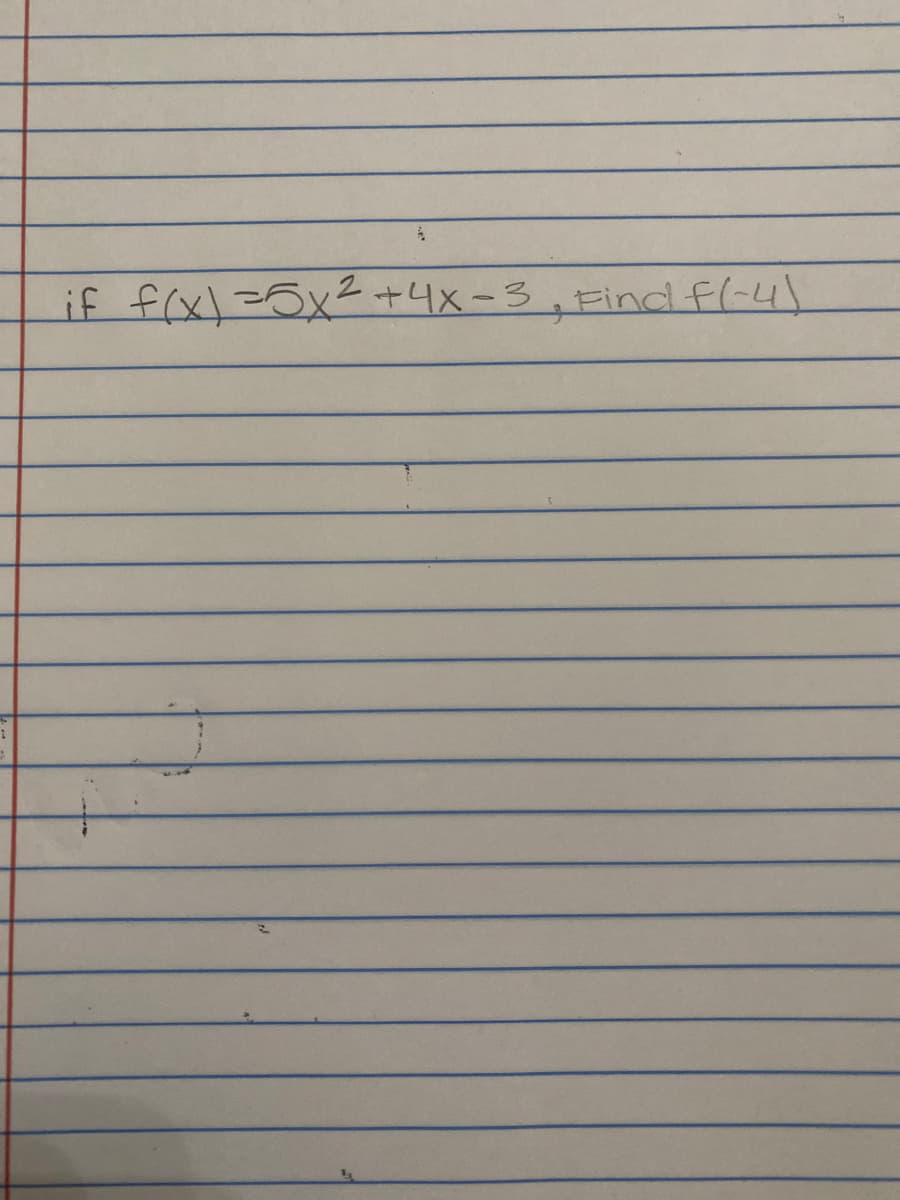 if f(x)=5x²+4x-3, Find f(-4)